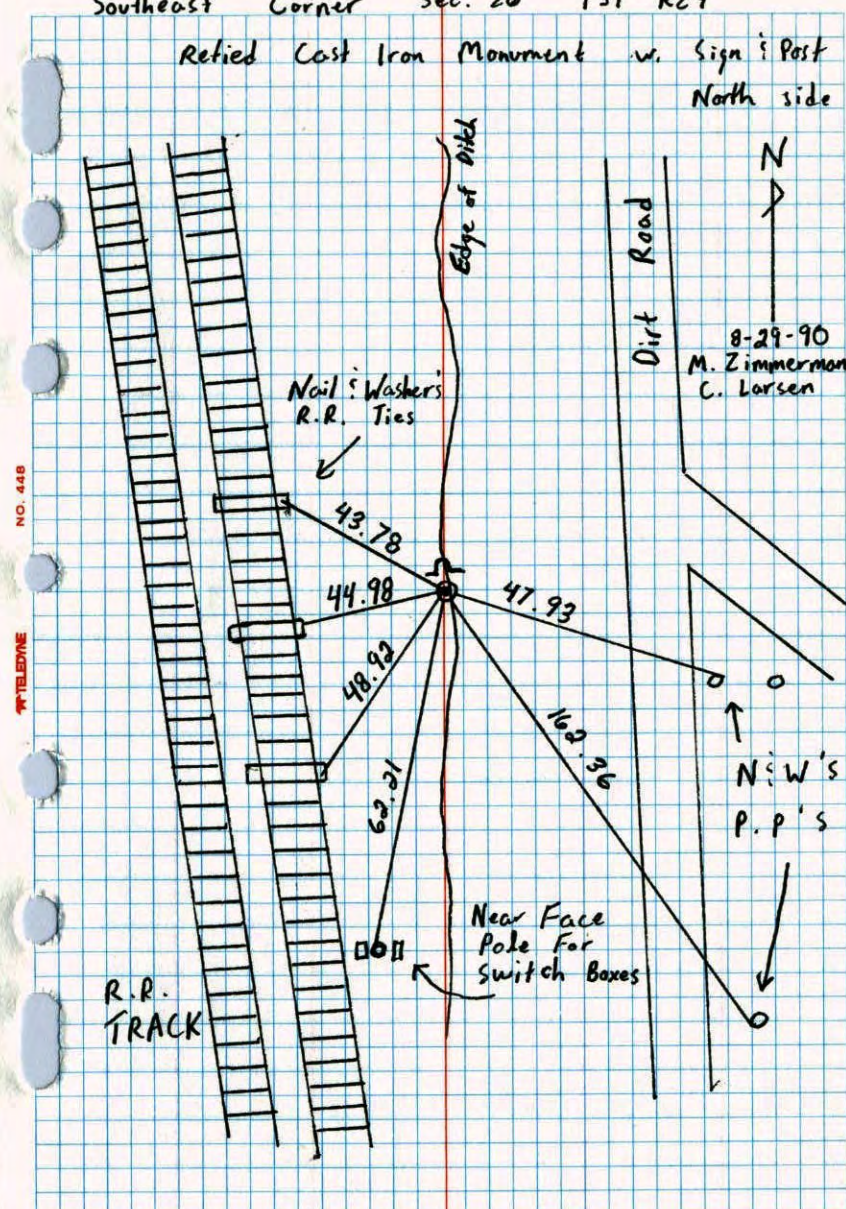 Southeast Corner Sec. 26
Retied Cast Iron Monument w. Sign & Post
North side
N
Edge of Ditch
Dirt Road
8-29-90
M. Zimmerman
C. Larsen
Nail & Washers
R.R. Ties
43.78
44.98
48.92
62.21
47.93
162.36
N & W's
P.P's
Near Face
Pole For
Switch Boxes
R.R.
TRACK
NO. 448
TELEDYNE